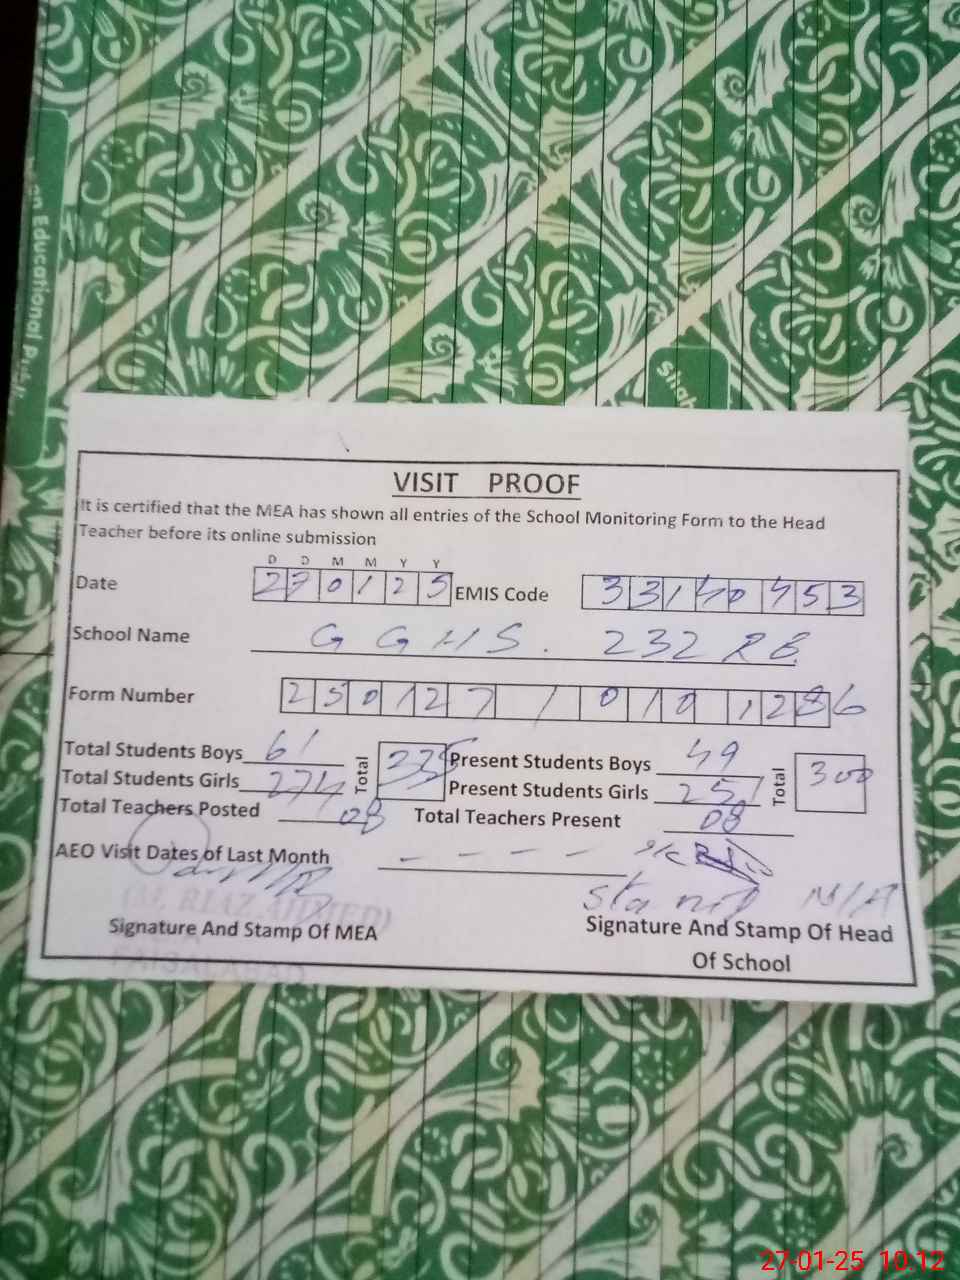 an Educational
Shah
VISIT PROOF
It is certified that the MEA has shown all entries of the School Monitoring Form to the Head
Teacher before its online submission
D D M M Y Y
Date 270125 EMIS Code 33140453
School Name GGHS. 232 RB
Form Number 250127/0101286
Total Students Boys 61 Total 335 Present Students Boys 49 Total 300
Total Students Girls 274 Present Students Girls 251
Total Teachers Posted 08 Total Teachers Present 08
AEO Visit Dates of Last Month - - - -
Stamp N/A
(M. RIAZ AHMED)
Signature And Stamp Of MEA Signature And Stamp Of Head
Of School
FAISALABAD
27-01-25 10:12